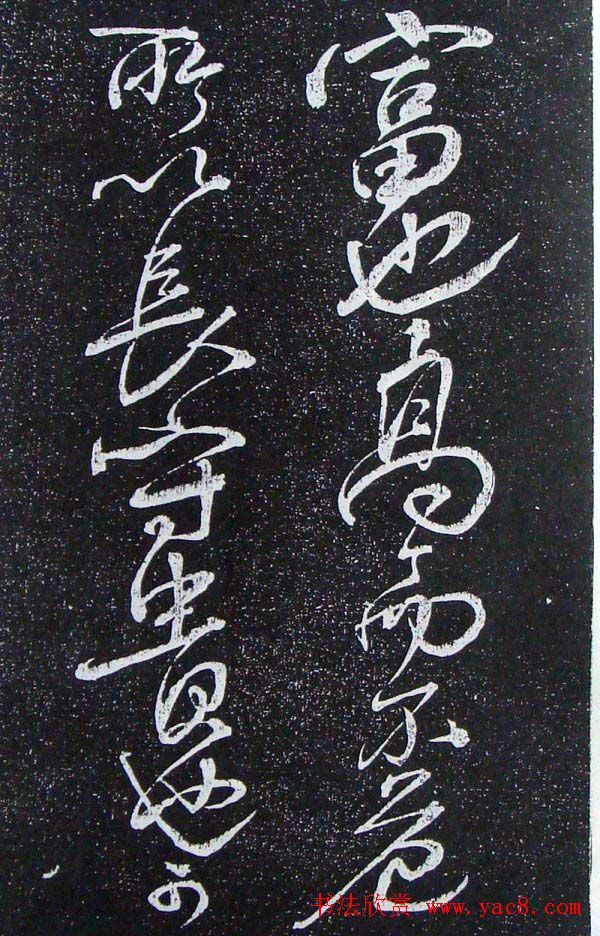 富也高而不危
所以長守貴也可
书法欣赏 www.yac8.com